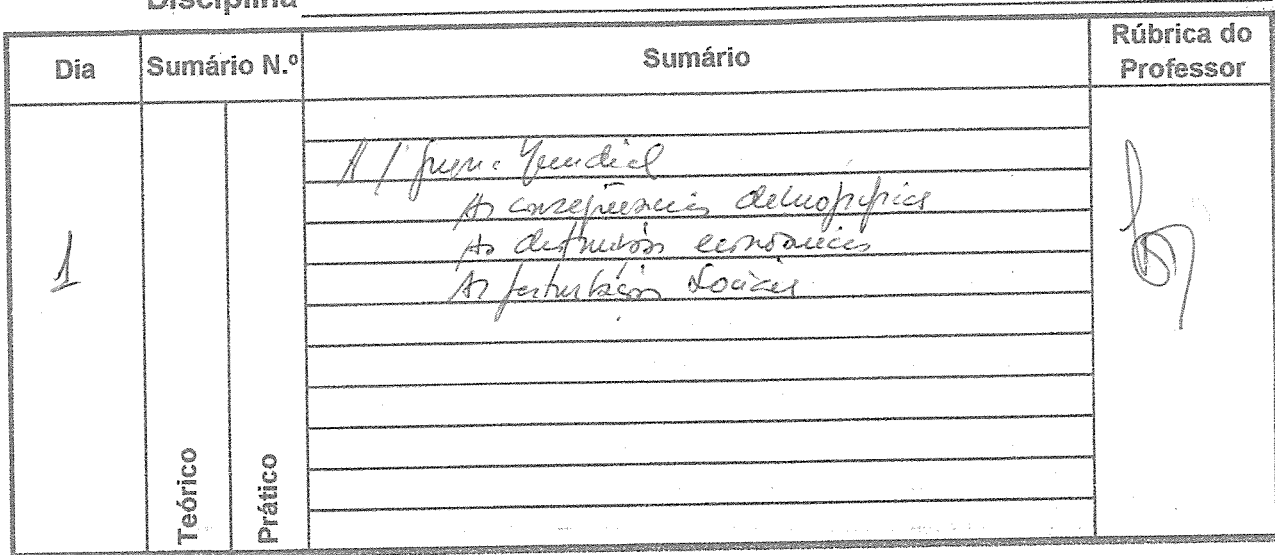 Disciplina
Dia
Sumário N.º
Sumário
Rúbrica do
Professor
1
A 1ª guerra Mundial
As consequências demográficas
As destruições económicas
As perturbações sociais.
Teórico
Prático